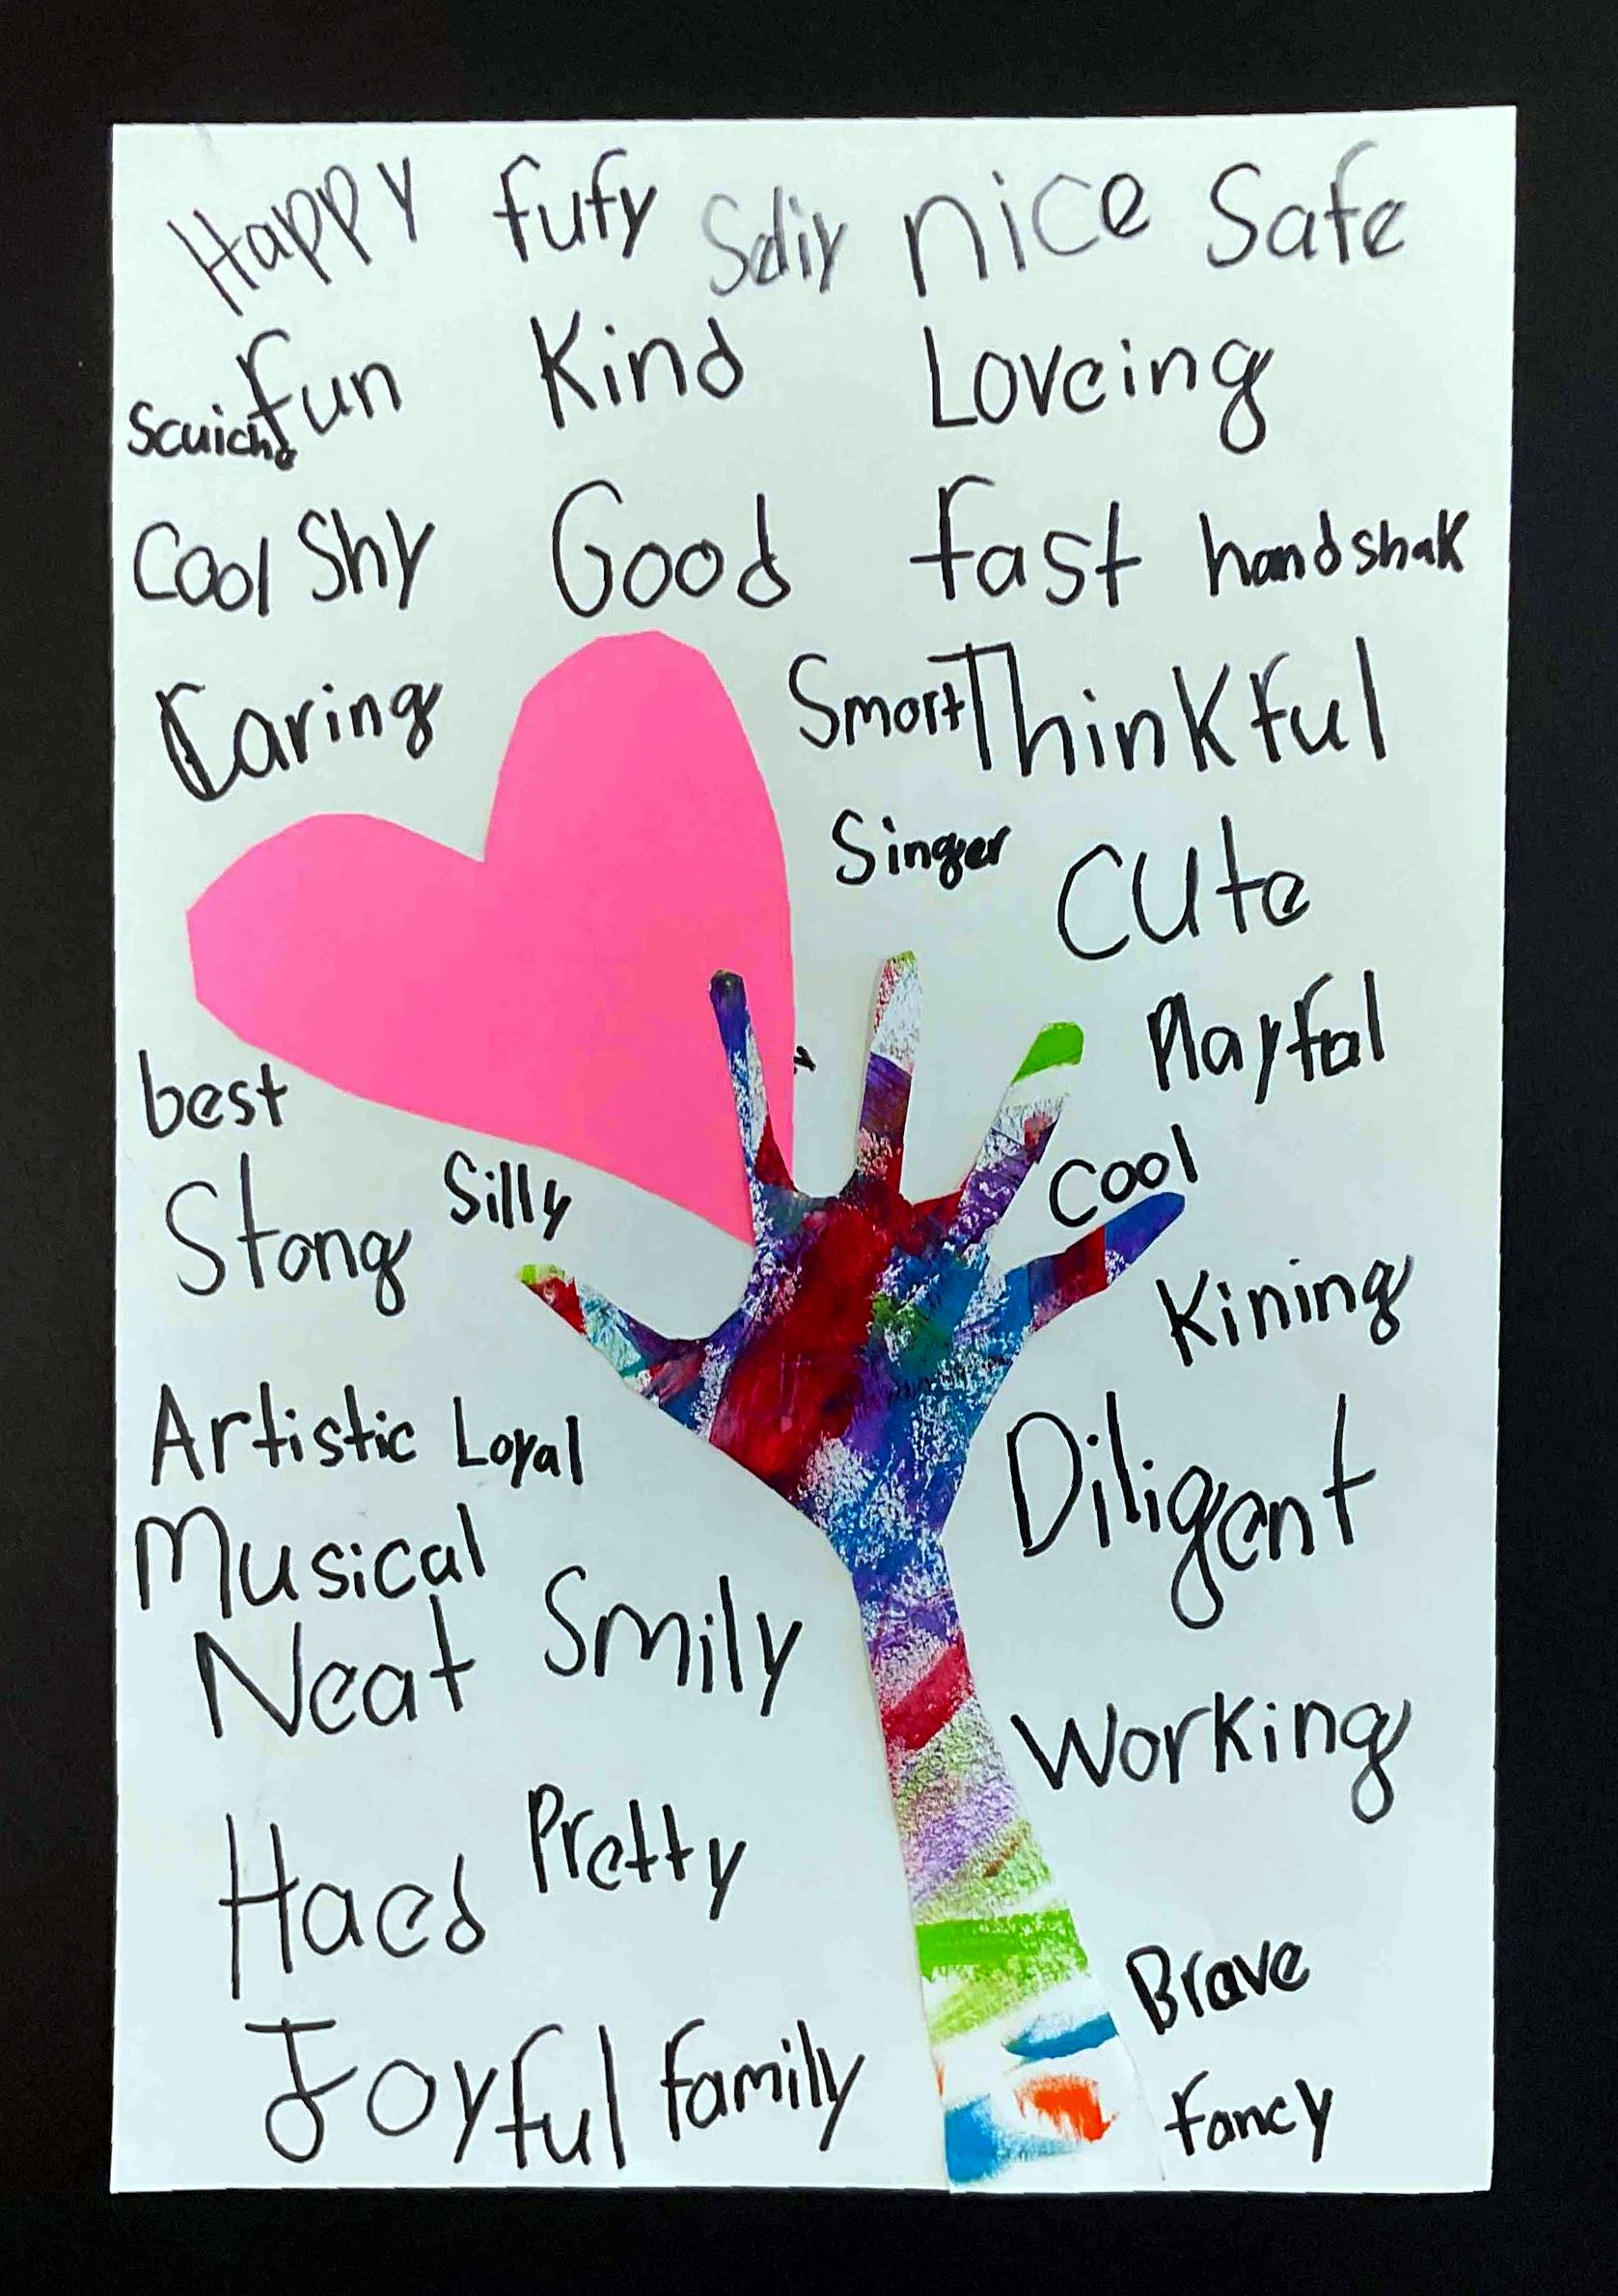 Happy fufy Sdliy nice Safe
fun Kind Loveing
Cool Shy Good fast handshak
Caring Smart Thinkful
Singer Cute
Playful
best Cool
Stong Silly
Kining
Artistic Loyal Diligent
Musical
Neat Smily
Working
Haed Pretty
Brave
Joyful family fancy